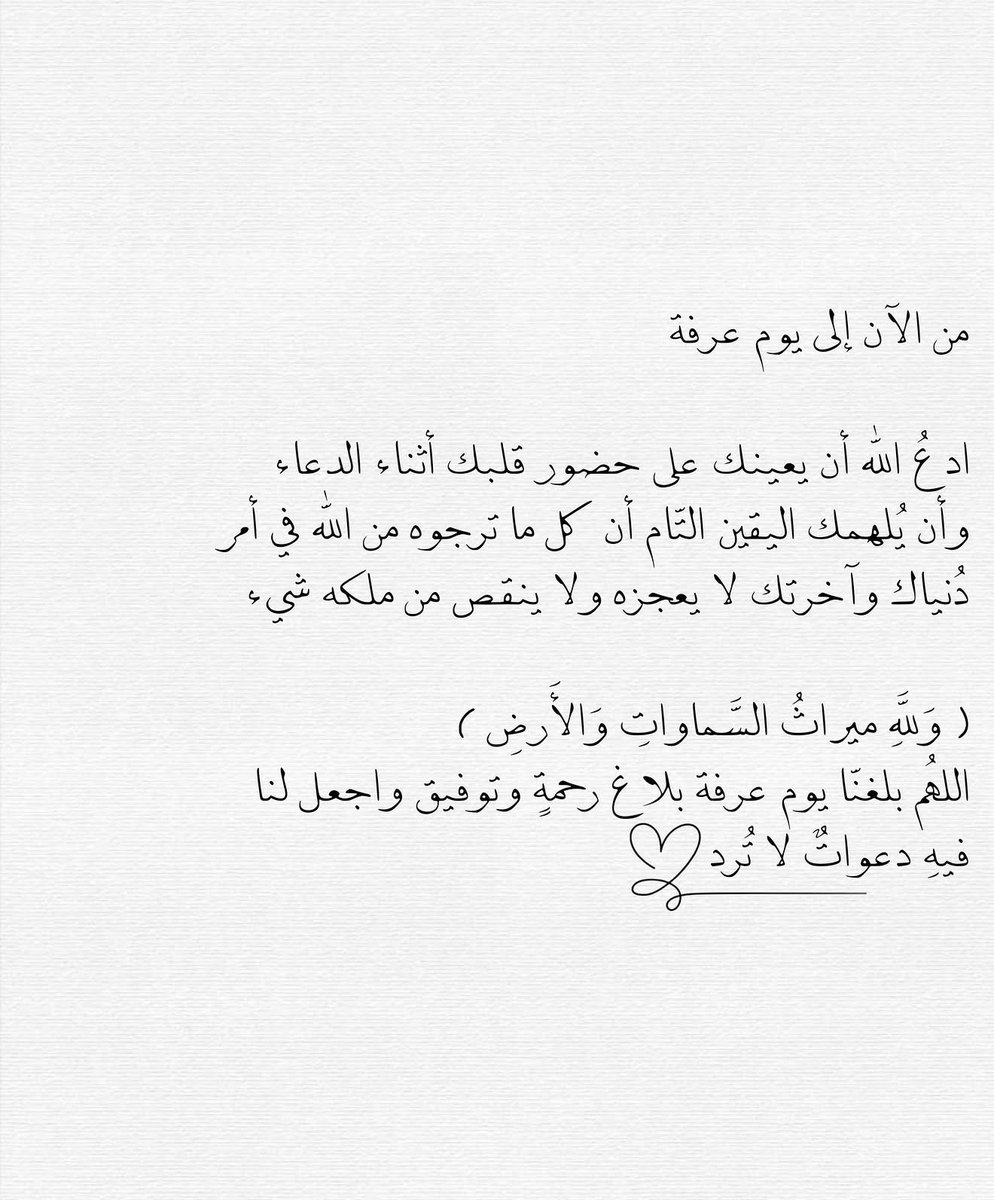 من الآن إلى يوم عرفة
ادعُ الله أن يعينك على حضور قلبك أثناء الدعاء
وأن يُلهمك اليقين التّام أن كل ما ترجوه من الله في أمر
دُنياك وآخرتك لا يعجزه ولا ينقص من ملكه شيء
( وَللَّهِ ميراثُ السَّماواتِ وَالأَرضِ )
اللهُم بلغنّا يوم عرفة بلاغ رحمةٍ وتوفيق واجعل لنا
فيهِ دعواتٌ لا تُرد